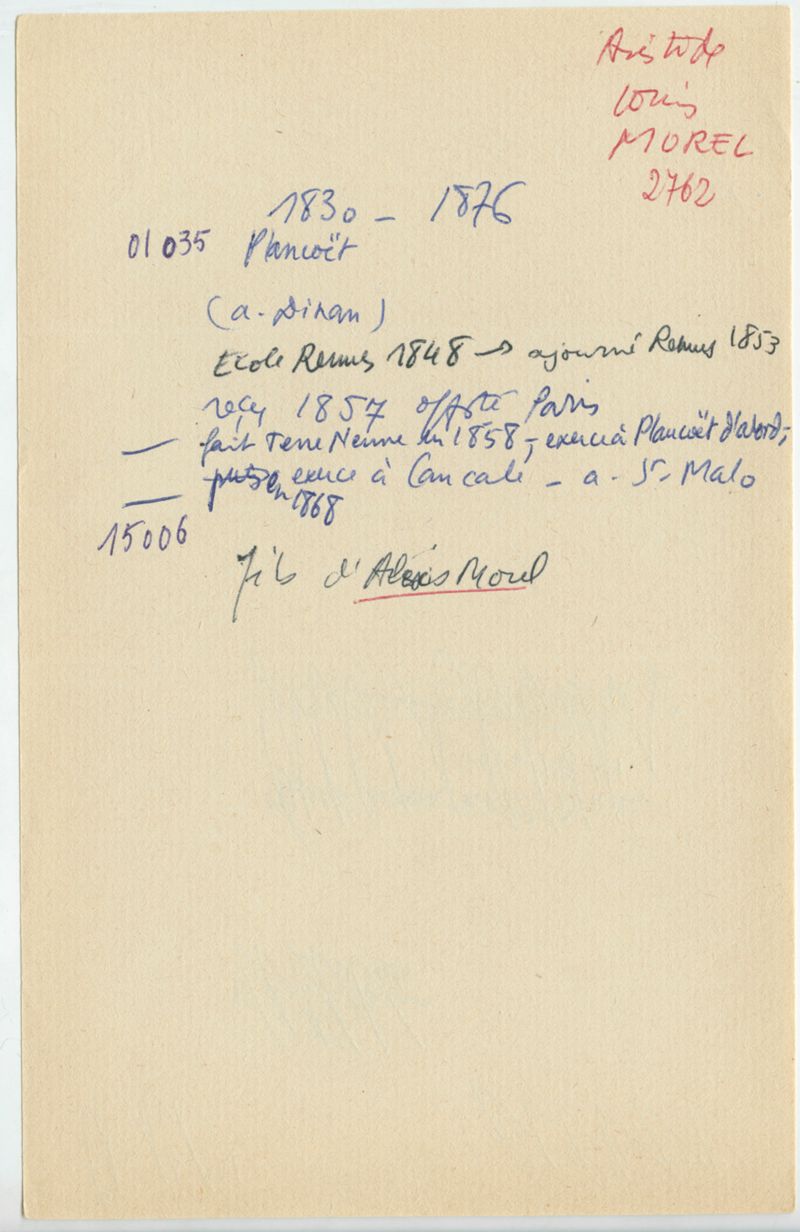 Aristide
Louis
MOREL
2762
1830 - 1876
01035 Plancoët
(a. Dinan)
Ecole Rennes 1848 → ajourné Rennes 1853
reçu 1857 offté Paris
— fait Terre Neuve en 1858, exerce à Plancoët d'abord,
puis exerce à Cancale - a. St Malo
— en 1868
15006
fils d'Alexis Morel